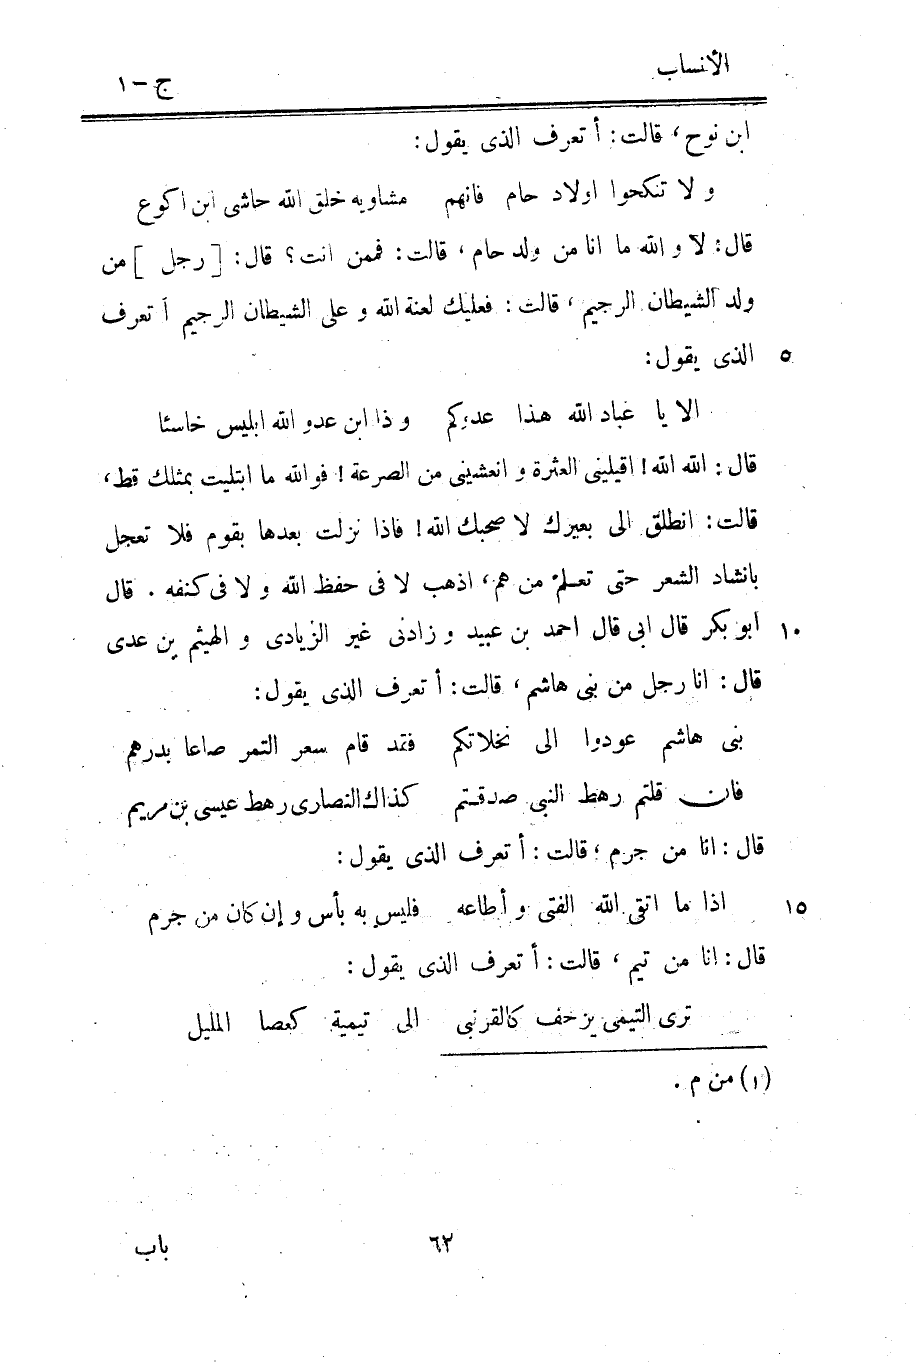 الأنساب
ج - ١
ابن نوح، قالت: أ تعرف الذى يقول:
و لا تنكحوا اولاد حام فانهم مشاويه خلق الله حاشى ابن اكوع
قال: لا و الله ما انا من ولد حام، قالت: فممن انت؟ قال: [رجل] من
ولد الشيطان الرجيم، قالت: فعليك لعنة الله و على الشيطان الرجيم أ تعرف
٥ الذى يقول:
الا يا عباد الله هذا عدوكم و ذا ابن عدو الله ابليس خاسئا
قال: الله الله! اقيلينى العثرة و انعشينى من الصرعة! فو الله ما ابتليت بمثلك قط،
قالت: انطلق الى بعيرك لا صحبك الله! فاذا نزلت بعدها بقوم فلا تعجل
بانشاد الشعر حتى تعلم من هم، اذهب لا فى حفظ الله و لا فى كنفه. قال
١٠ ابو بكر قال ابى قال احمد بن عبيد و زادنى غير الزيادى و الهيثم بن عدى
قال: انا رجل من بنى هاشم، قالت: أ تعرف الذى يقول:
بنى هاشم عودوا الى نخلاتكم فقد قام سعر التمر صاعا بدرهم
فان قلتم رهط النبى صدقتم كذاك النصارى رهط عيسى بن مريم
قال: انا من جرم؛ قالت: أ تعرف الذى يقول:
١٥ اذا ما اتقى الله الفتى و أطاعه فليس به بأس و إن كان من جرم
قال: انا من تيم، قالت: أ تعرف الذى يقول:
ترى التيمى يزحف كالقرنبى الى تيمية كعصا المليل
(١) من م.
٦٢
باب